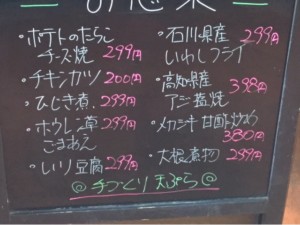 ・ポテトのたらこ
チーズ焼 299円
・チキンカツ 200円
・ひじき煮 299円
・ホウレン草
ごまあえ 299円
・いり豆腐 299円
・石川県産 299円
いわしフライ
・高知県産
アジ塩焼 398円
・メカジキ甘酢炒め
380円
・大根煮物 299円
@手づくり天ぷら@